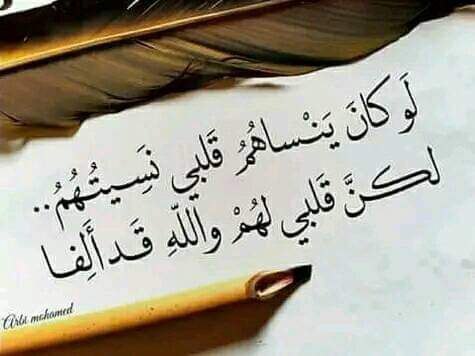 لَو كانَ يَنْساهُمُ قَلبي نَسِيتُهُمُ..
لكنَّ قَلبي لهُمْ واللّهِ قَد أَلِفا
Arbi mohomed